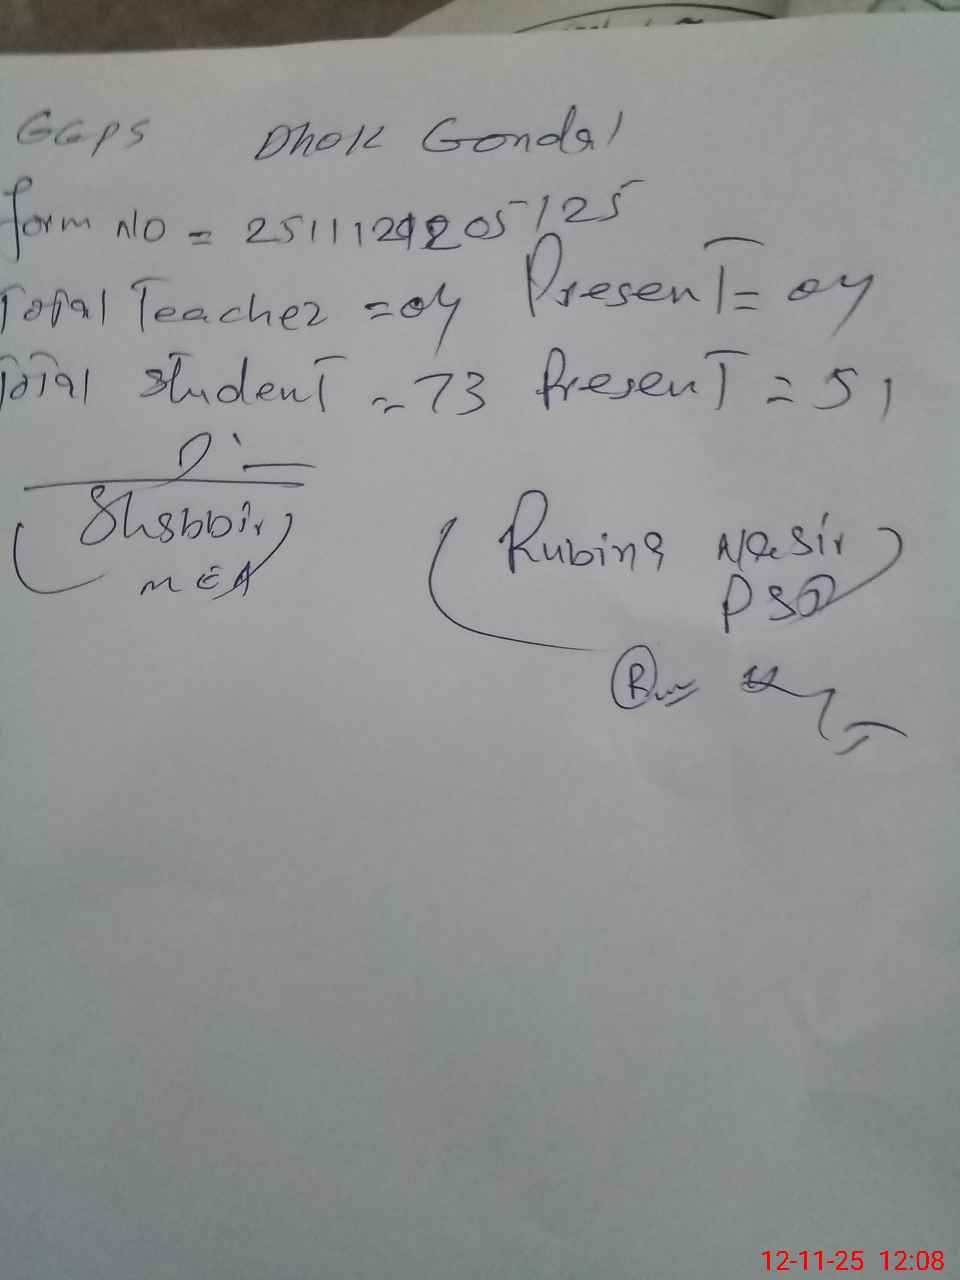 GGPS Dhok Gondal
Form NO = 25111291205/125
Total Teacher = 04 Present = 04
Total Student = 73 Present = 51
Shabbir
MEA
Rubina Nasir
PST
12-11-25 12:08